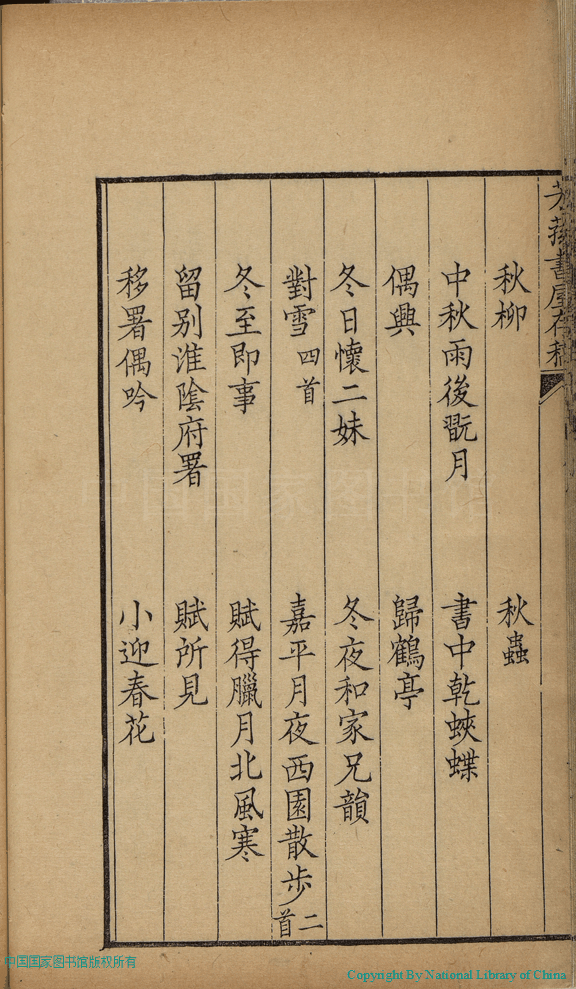 芳蓀書屋存稿
秋柳
秋蟲
中秋雨後翫月
書中乾蛺蝶
偶興
歸鶴亭
冬日懷二妹
冬夜和家兄韻
對雪 四首
嘉平月夜西園散步 二首
冬至即事
賦得臘月北風寒
留別淮陰府署
賦所見
移署偶吟
小迎春花
中国国家图书馆
中国国家图书馆版权所有
Copyright By National Library of China